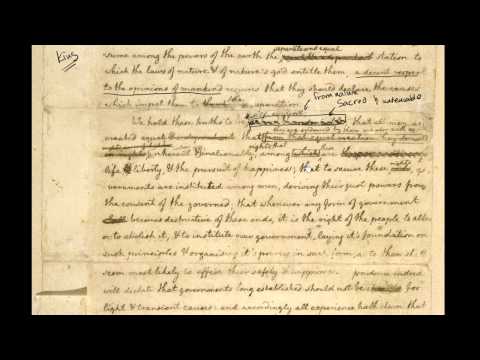 King
separate and equal
sume among the powers of the earth the station to
which the laws of nature & of nature's god entitle them, a decent respect
to the opinions of mankind requires that they should declare the causes
which impel them to the separation.
from nature
self evident
Sacred & undeniable
We hold these truths to be that all men are
created equal that
rights that
inherent & inalienable, among
life & liberty, & the pursuit of happiness; that to secure these rights
vernments are instituted among men, deriving their just powers from
the consent of the governed; that whenever any form of government
becomes destructive of these ends, it is the right of the people to alter
or to abolish it, & to institute new government, laying it's foundation on
such principles & organising it's powers in such form, as to them sh
seem most likely to effect their safety & happiness. prudence indeed
will dictate that governments long established should not be for
light & transient causes: and accordingly all experience hath shewn that